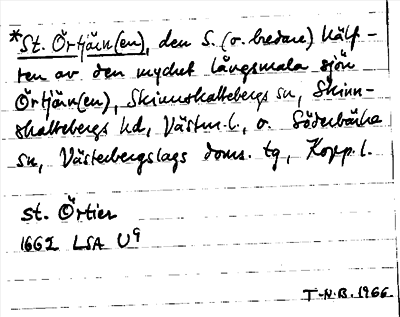 *St. Örtjärn(en), den S. (o. bredare) hälf-
ten av den mycket långsmala sjön
Örtjärn(en), Skinnskattebergs sn, Skinn-
skattebergs hd, Västm. l., o. Söderbärke
sn, Västerbergslags doms. tg, Kopp. l.
St. Örtier
1662 LSA U9
T.N.B. 1966